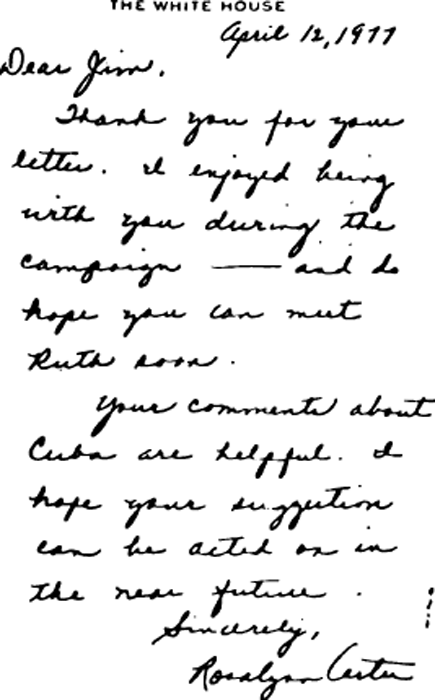 THE WHITE HOUSE
April 12, 1977
Dear Jim,
Thank you for your
letter. I enjoyed being
with you during the
campaign — and do
hope you can meet
Ruth soon.
Your comments about
Cuba are helpful. I
hope your suggestion
can be acted on in
the near future.
Sincerely,
Rosalynn Carter